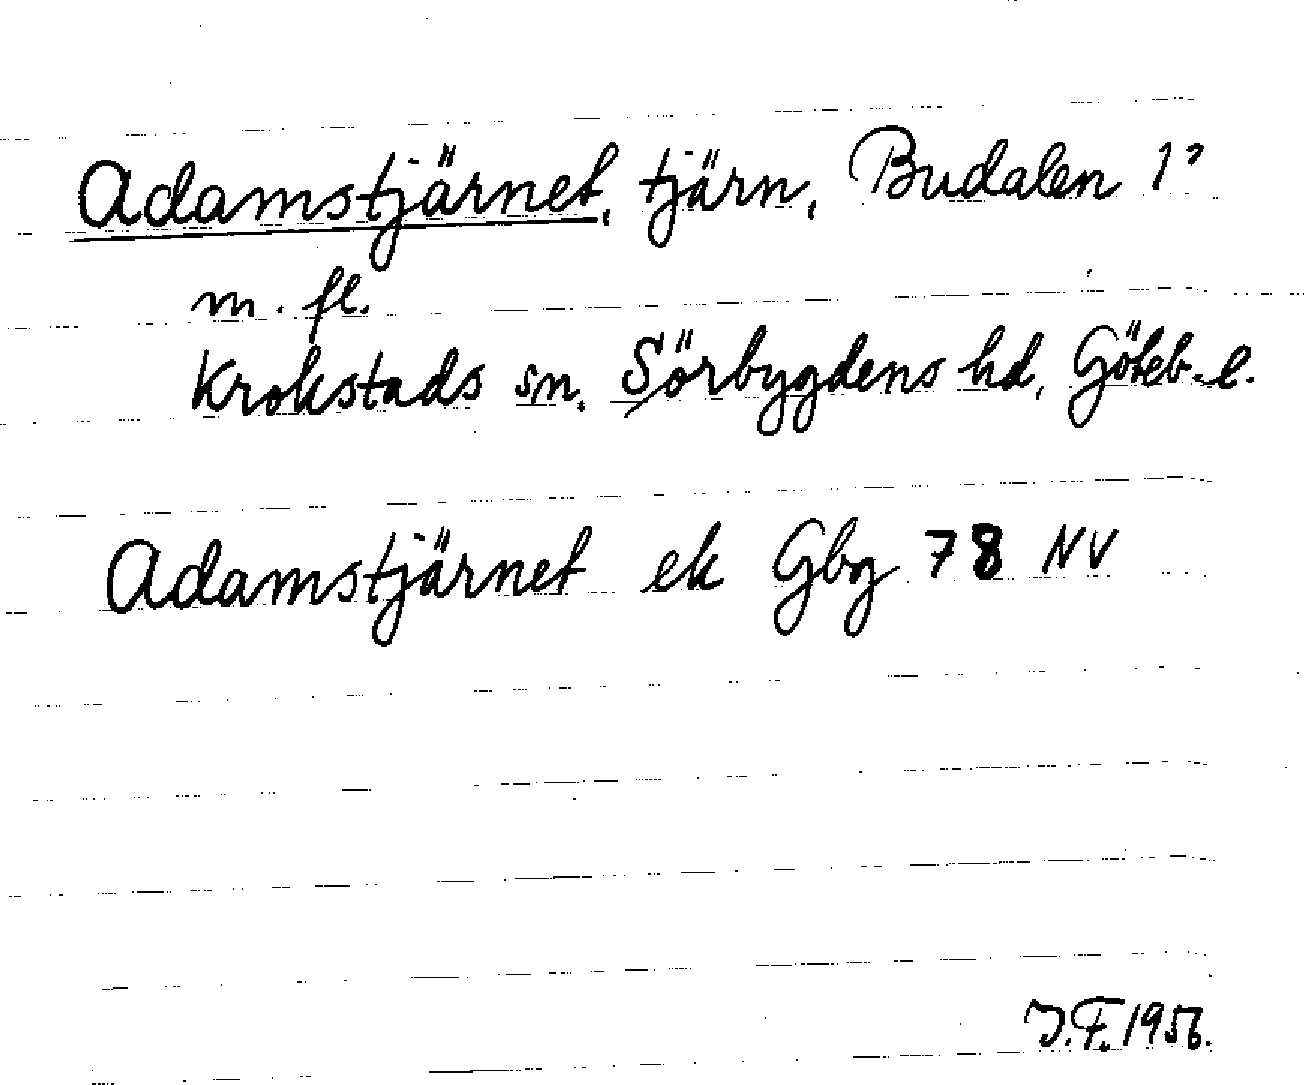 Adamstjärnet, tjärn, Budalen 1?
m. fl.
Krokstads sn. Sörbygdens hd, Göteb. l.
Adamstjärnet ek Gbg 78 NV
J.F. 1956.